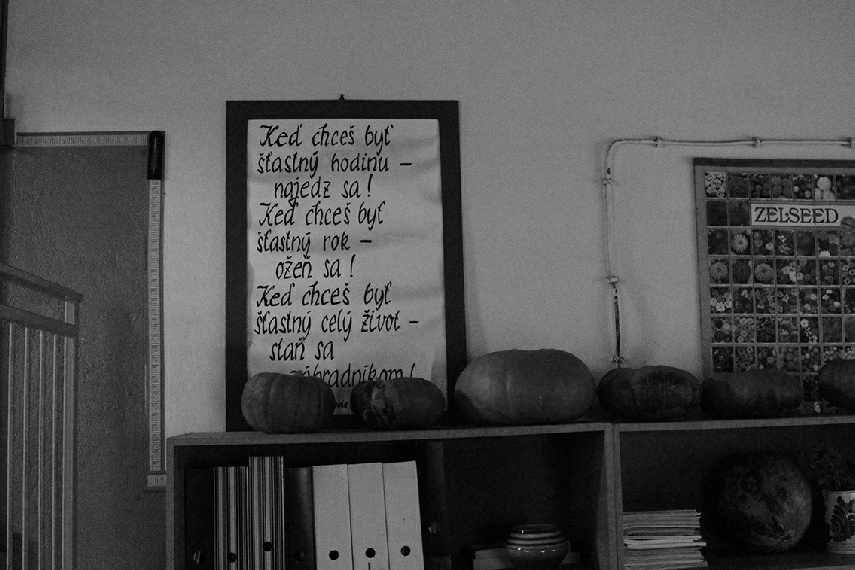 Keď chceš byť
šťastný hodinu –
najedz sa!
Keď chceš byť
šťastný rok –
ožeň sa!
Keď chceš byť
šťastný celý život –
staň sa
záhradníkom!
ZELSEED